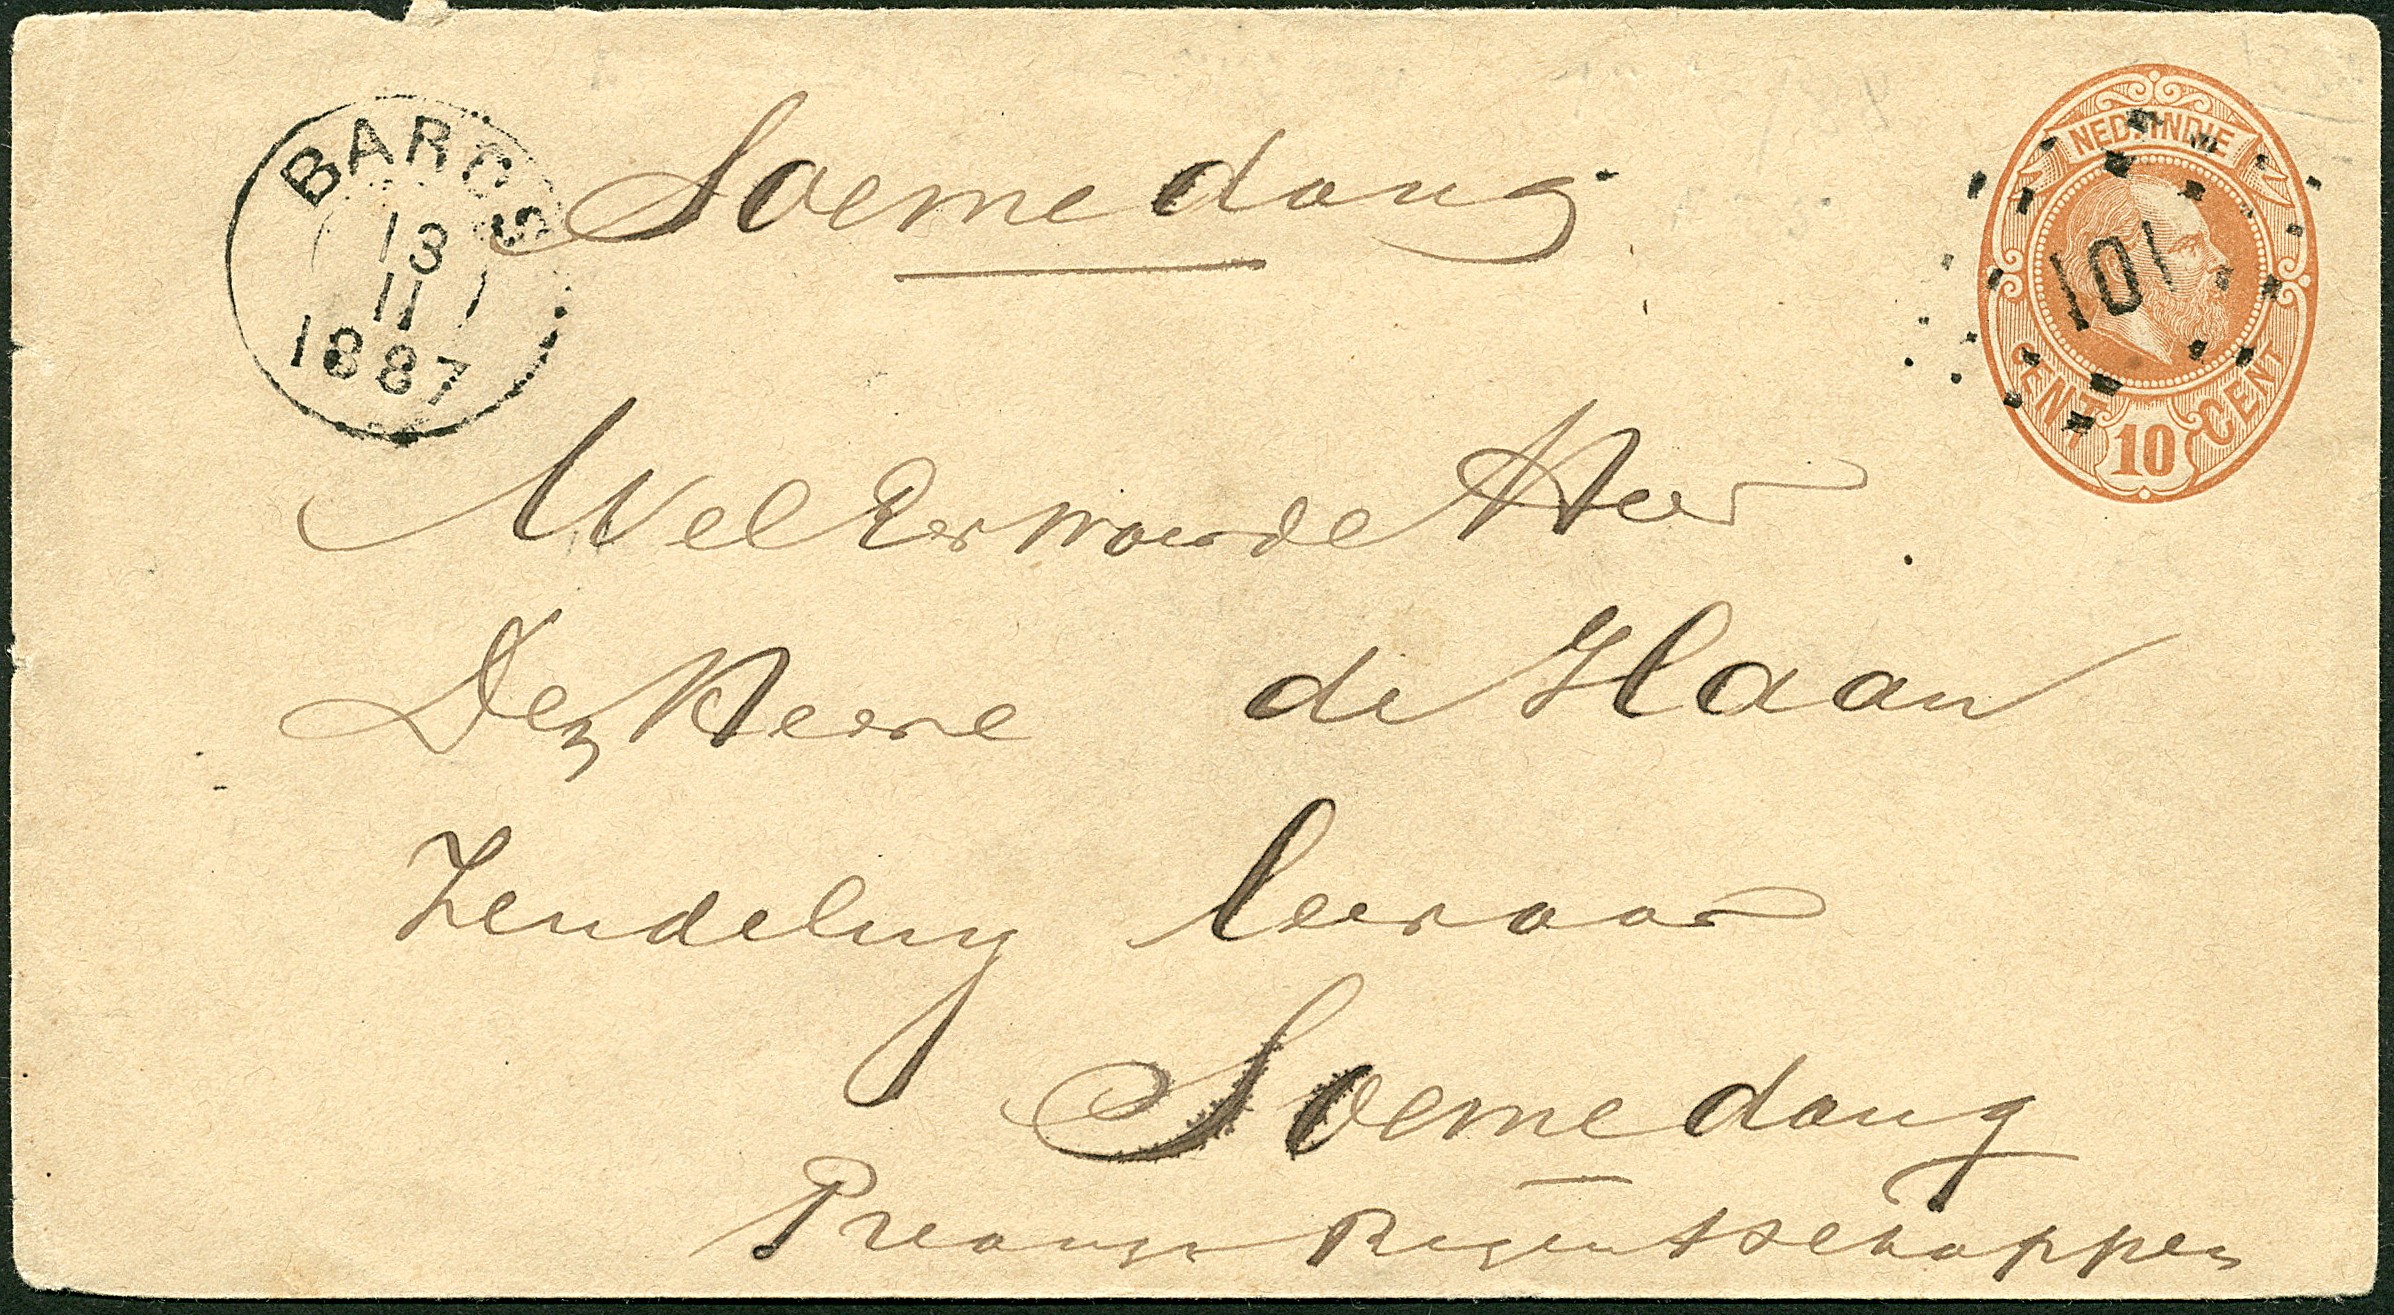 BAROS
13
11
1887
Soemedang.
NED. INDIE
101
CENT 10 CENT
Wel Eerwaarde Heer
Den Heere de Haan
Zendeling leeraar
Soemedang
Preanger Regentschappen